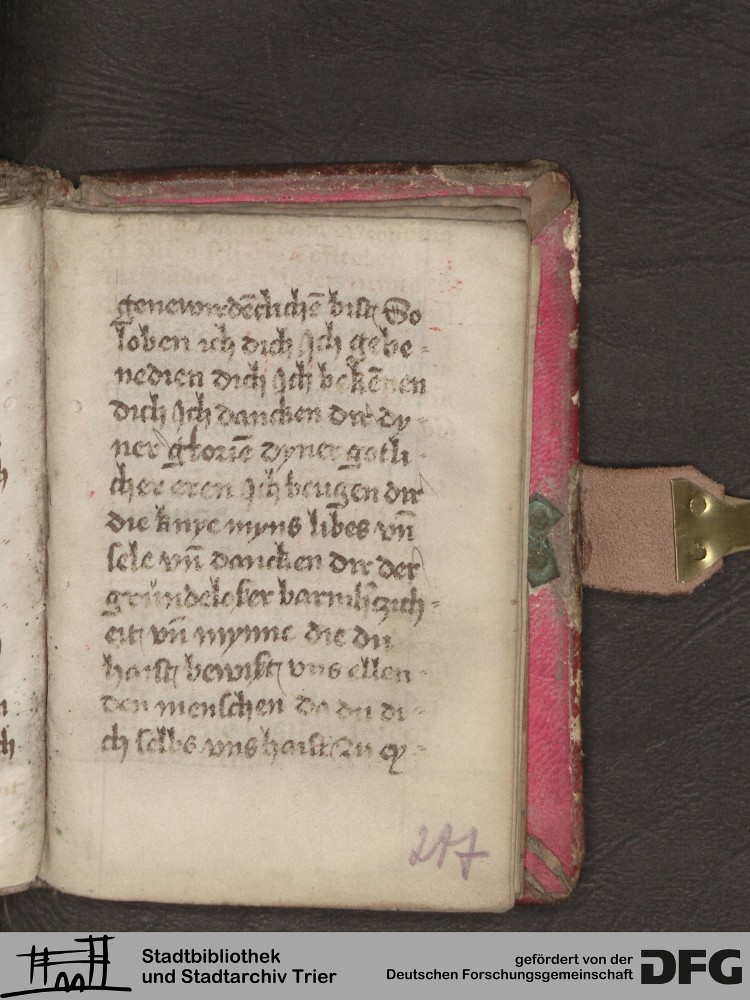 genewirdēclichē bist So
loben ich dich Ich gebe-
nedien dich Ich bekēnen
dich Ich dancken dir dy-
ner glorie dyner gotli-
cher eren Ich beugen dir
die knye myns libes vn̄
sele vn̄ dancken dir der
gründeloser barmh̄czich-
eit vn̄ mynne die du
haist bewist vns ellen-
den menschen da du di-
ch selbs vns haist zu ey-
217
Stadtbibliothek
und Stadtarchiv Trier
gefördert von der
Deutschen Forschungsgemeinschaft
DFG